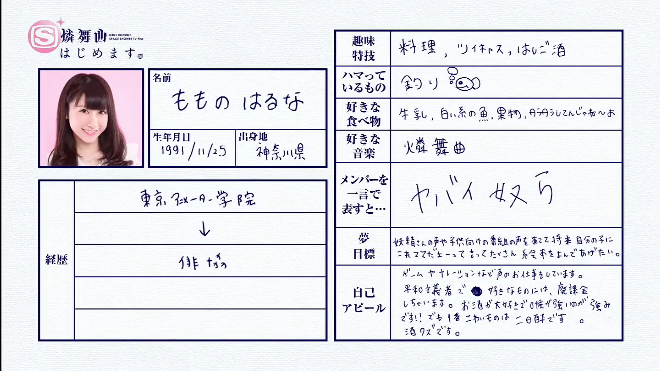 燐舞曲
はじめます。
名前
ももの はるな
生年月日
1991/11/25
出身地
神奈川県
経歴
東京アニメーター学院
↓
俳協
趣味
特技
料理、ツイキャス、はしご酒
ハマって
いるもの
釣り
好きな
食べ物
牛乳、白い系の魚、果物、
好きな
音楽
燐舞曲
メンバーを
一言で
表すと…
ヤバイ奴ら
夢
目標
妖精さんの声や子供向けの番組の声を当てて将来自分の子に
これママだよーって言ってたくさん絵本をよんであげたい。
自己
アピール
ゲームやナレーションなど声のお仕事をしています。
平和主義者で 好きなものには、廃課金
しちゃいます。お酒が大好きで肝臓が強いのが強み
です!!でも1番こわいものは二日酔です。
酒クズです。